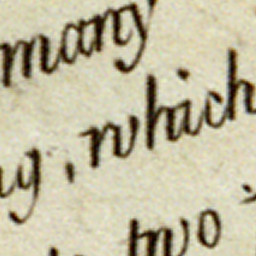 many
, which
two